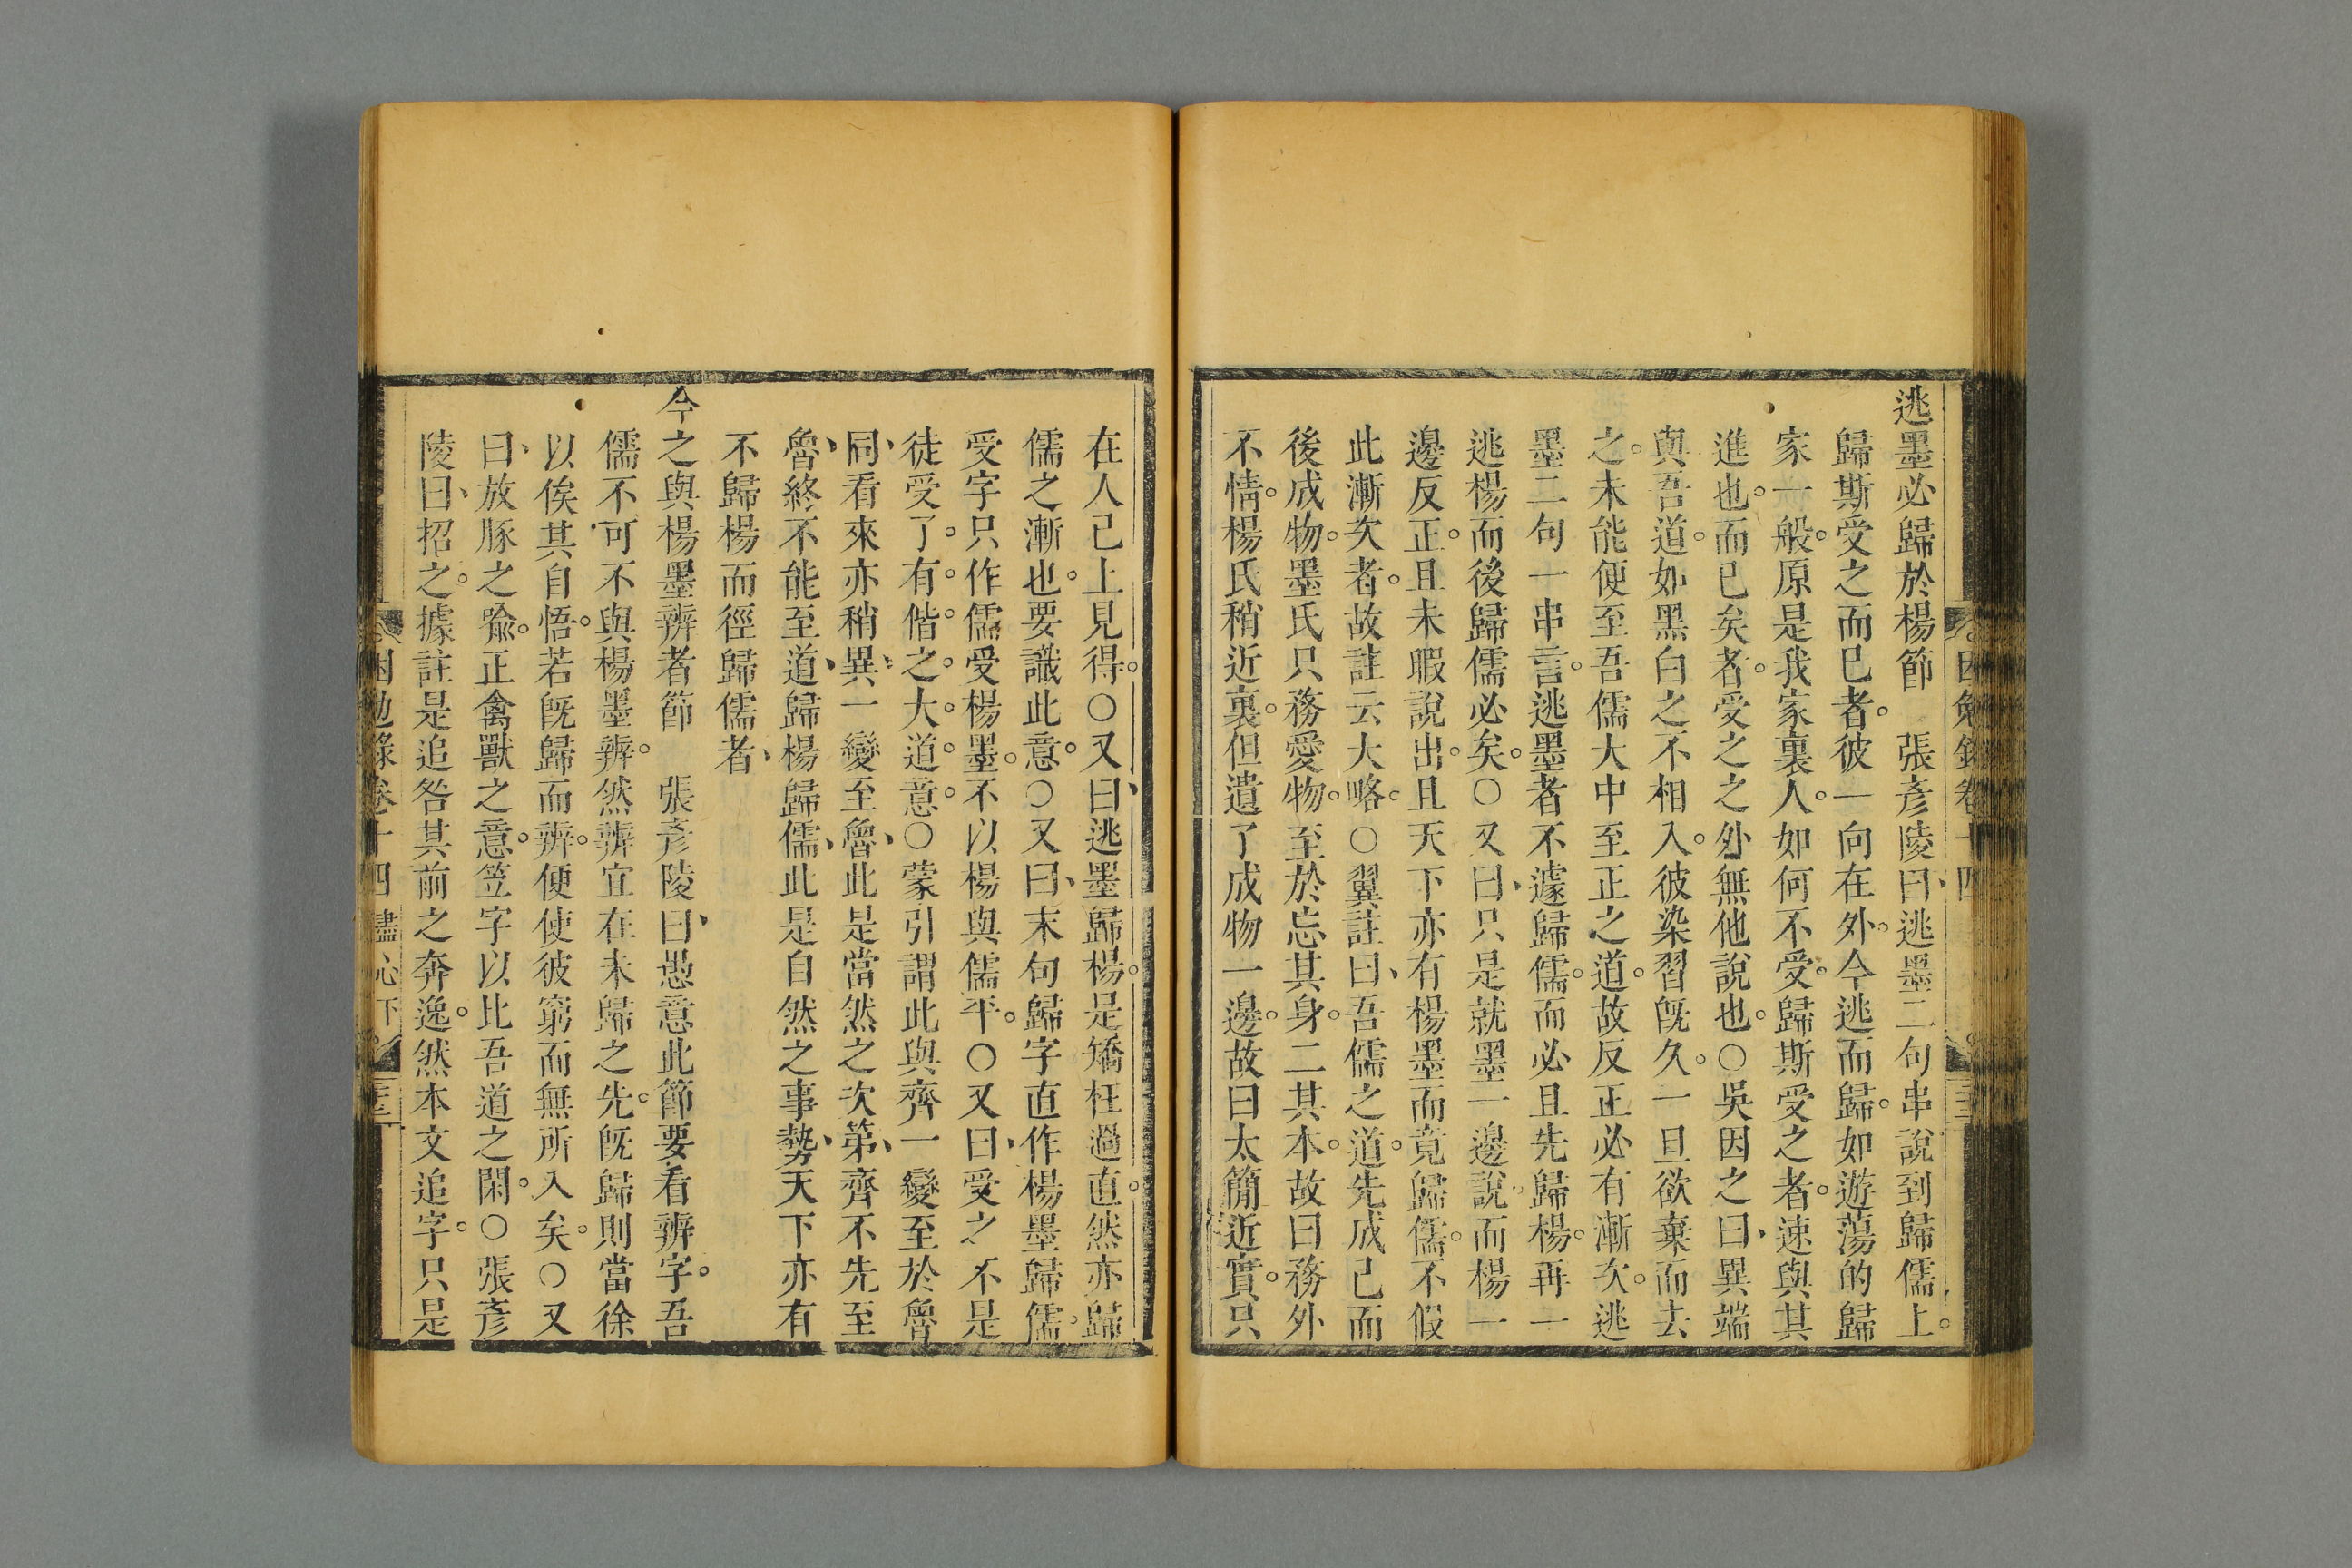 逃墨必歸於楊節　張彥陵曰逃墨二句串說到歸儒上
歸斯受之而已者彼一向在外今逃而歸如遊蕩的歸
家一般原是我家裏人如何不受歸斯受之者速與其
進也而已矣者受之之外無他說也○吳因之曰異端
與吾道如黑白之不相入彼染習旣久一旦欲棄而去
之未能便至吾儒大中至正之道故反正必有漸次逃
墨二句一串言逃墨者不遽歸儒而必且先歸楊再一
逃楊而後歸儒必矣○又曰只是就墨一邊說而楊一
邊反正且未暇說出且天下亦有楊墨而竟歸儒不假
此漸次者故註云大略○翼註曰吾儒之道先成己而
後成物墨氏只務愛物至於忘其身二其本故曰務外
不情楊氏稍近裏但遺了成物一邊故曰太簡近實只
在人己上見得○又曰逃墨歸楊是矯枉過直然亦歸
儒之漸也要識此意○又曰末句歸字直作楊墨歸儒
受字只作儒受楊墨不以楊與儒平○又曰受之不是
徒受了有偕之大道意○蒙引謂此與齊一變至於魯
同看來亦稍異一變至魯此是當然之次第齊不先至
魯終不能至道歸楊歸儒此是自然之事勢天下亦有
不歸楊而徑歸儒者
今之與楊墨辨者節　張彥陵曰愚意此節要看辨字吾
儒不可不與楊墨辨然辨宜在未歸之先旣歸則當徐
以俟其自悟若旣歸而辨便使彼窮而無所入矣○又
曰放豚之喻正禽獸之意笠字以比吾道之閑○張彥
陵曰招之據註是追咎其前之奔逸然本文追字只是
困勉錄卷十四 盡心下